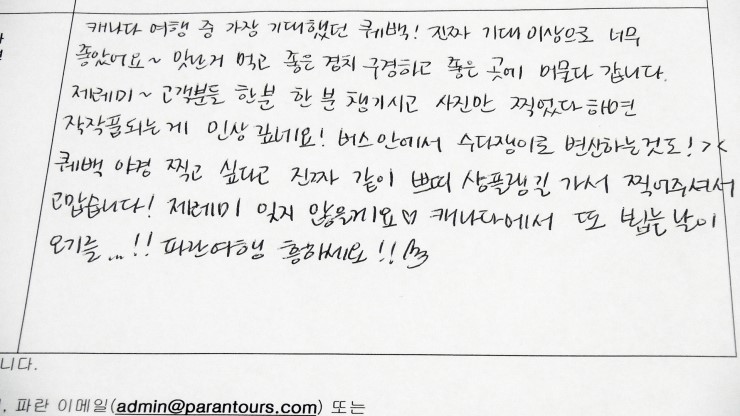 캐나다 여행 중 가장 기대했던 퀘백! 진짜 기대 이상으로 너무
좋았어요~ 맛난거 먹고 좋은 경치 구경하고 좋은 곳에 머물다 갑니다.
제레미~ 고객분들 한분 한 분 챙기시고 사진만 찍었다 하면
작작품되는게 인상 깊네요! 버스안에서 수다쟁이로 변산하는것도! ><
퀘백 야경 찍고 싶다고 진짜 같이 쁘띠 샹플랭길 가서 찍어주셔서
고맙습니다! 제레미 잊지 않을게요♡ 캐나다에서 또 뵙는 날이
오기를...!! 파란여행 흥하세요!!
니다.
파란 이메일(admin@parantours.com) 또는